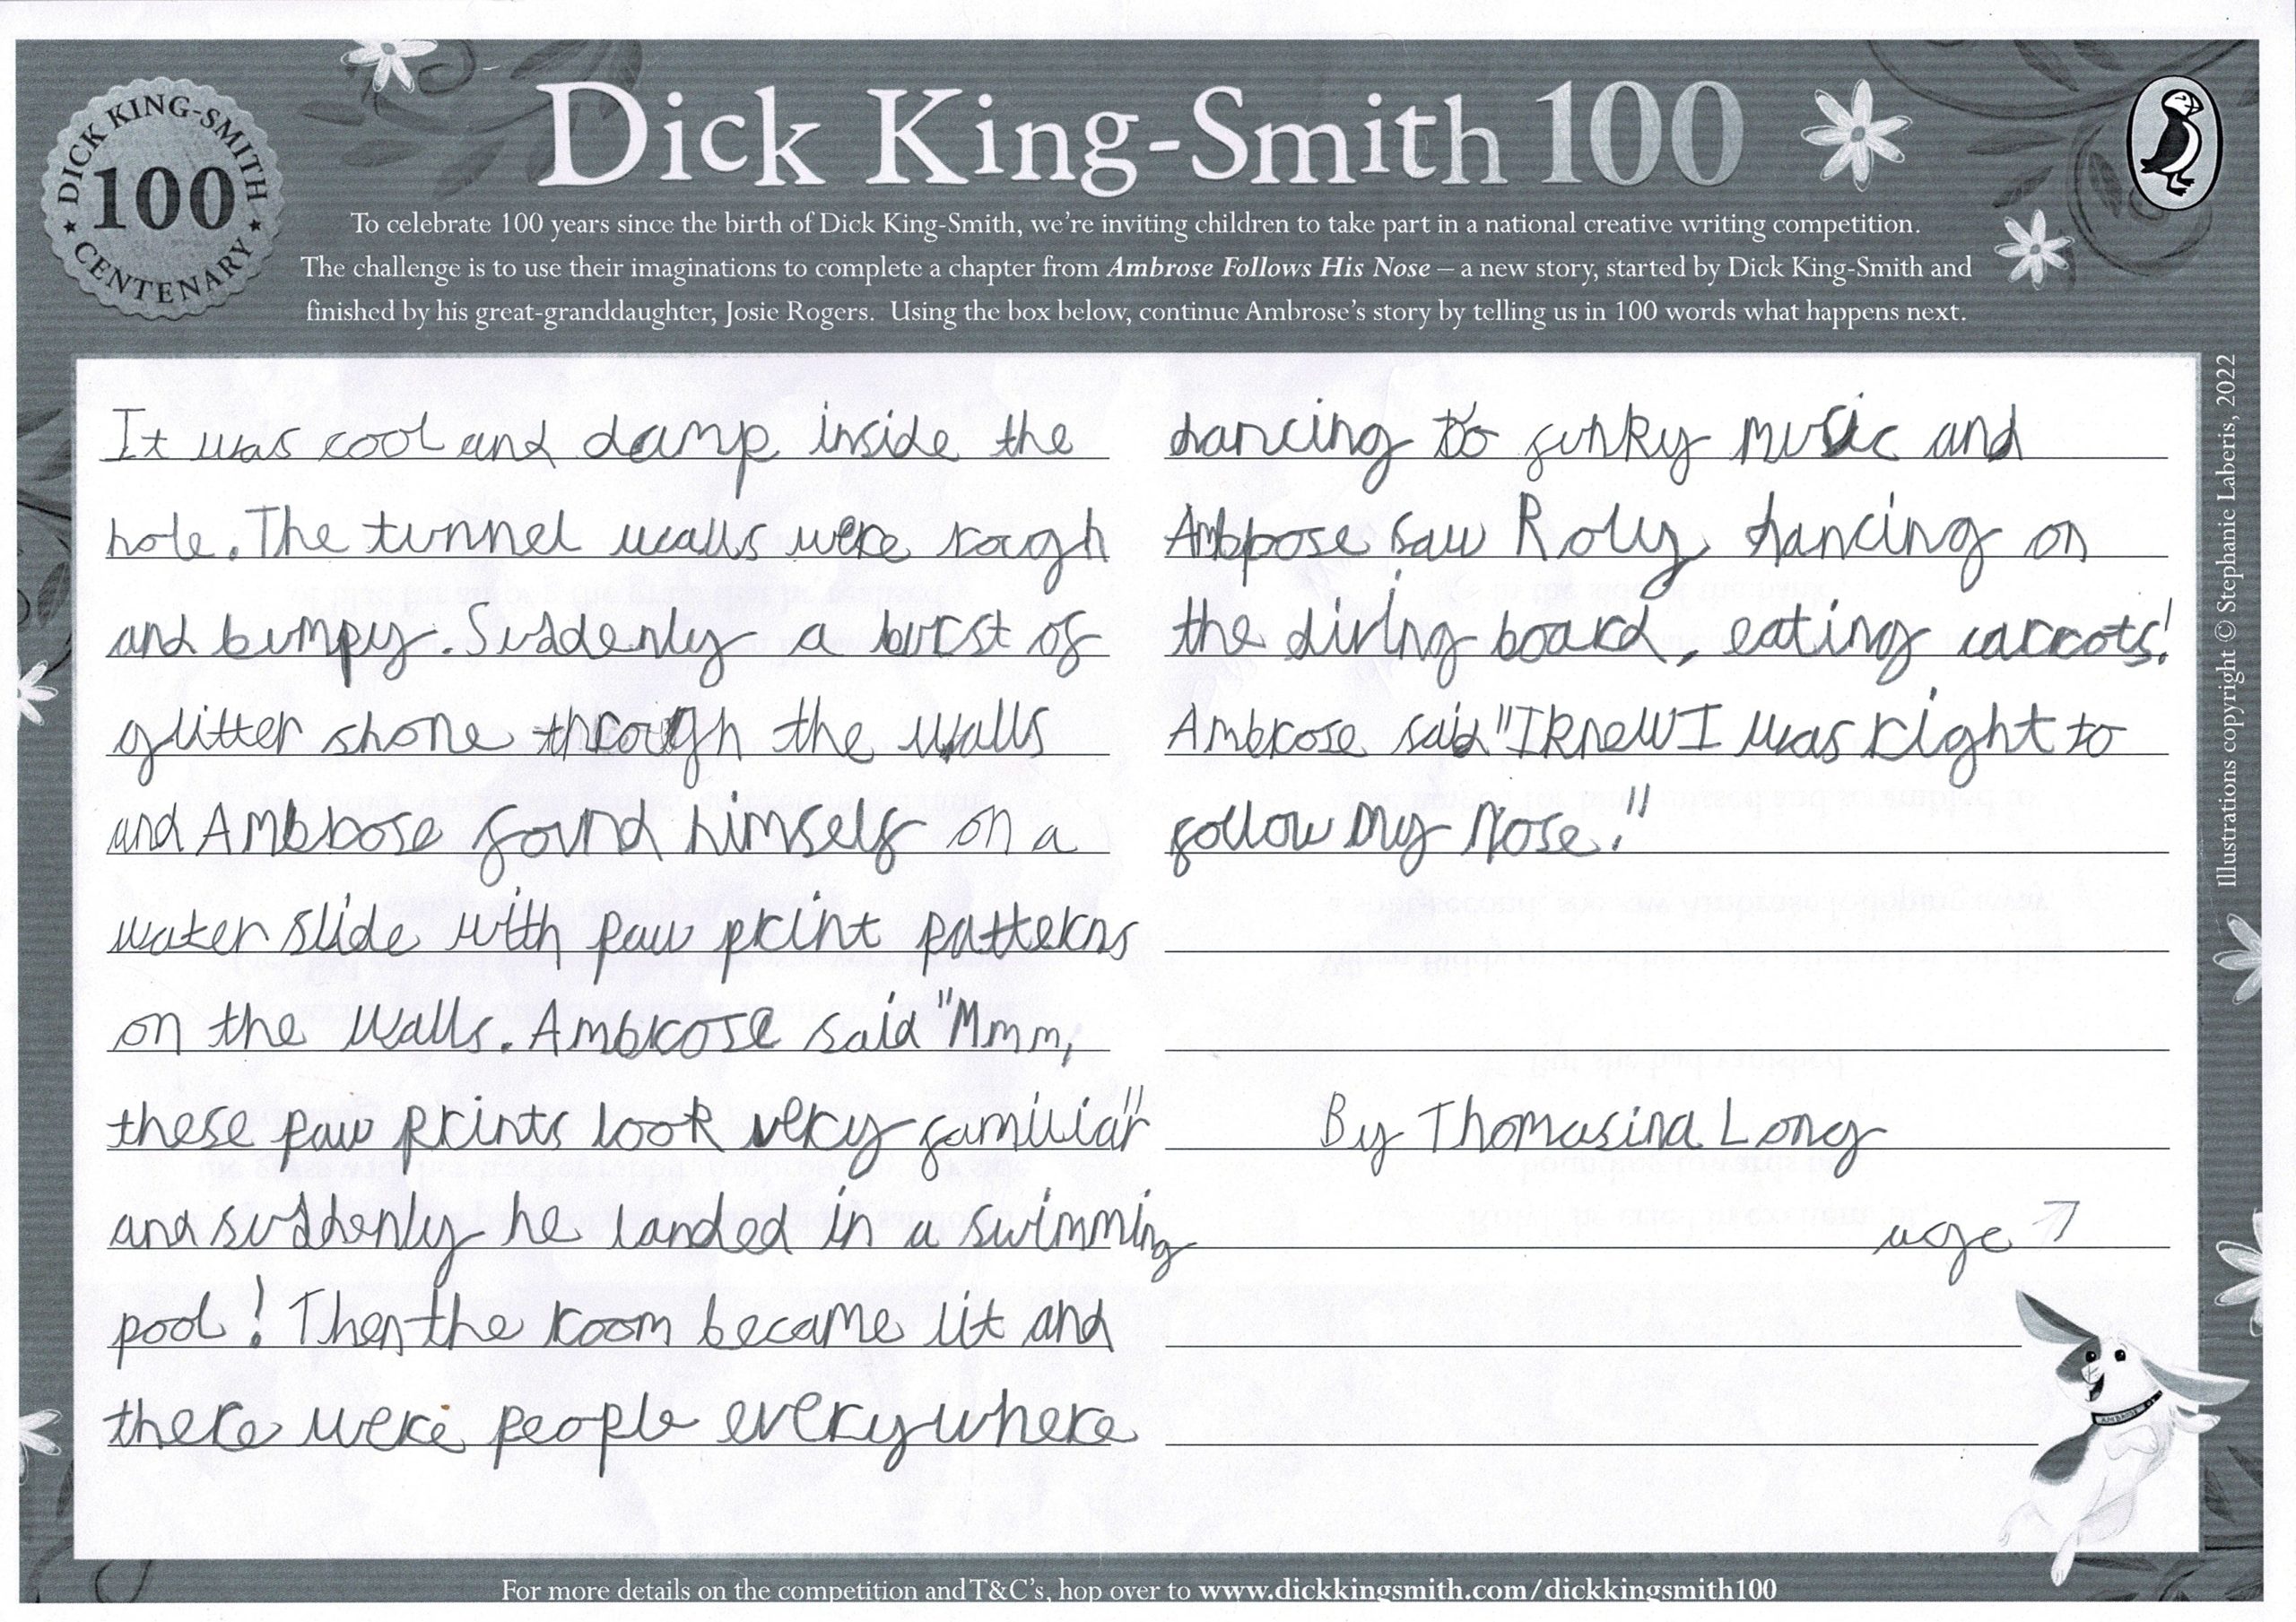 DICK KING-SMITH
100
CENTENARY
Dick King-Smith 100
To celebrate 100 years since the birth of Dick King-Smith, we're inviting children to take part in a national creative writing competition.
The challenge is to use their imaginations to complete a chapter from Ambrose Follows His Nose – a new story, started by Dick King-Smith and
finished by his great-granddaughter, Josie Rogers. Using the box below, continue Ambrose's story by telling us in 100 words what happens next.
It was cool and damp inside the
hole. The tunnel walls were rough
and bumpy. Suddenly a burst of
glitter shone through the walls
and Ambrose found himself on a
water slide with paw print patterns
on the walls. Ambrose said "Mmm,
these paw prints look very familiar"
and suddenly he landed in a swimming
pool! Then the room became lit and
there were people everywhere
dancing to funky music and
Ambrose saw Roly dancing on
the diving board, eating carrots!
Ambrose said "I knew I was right to
follow my nose!"
By Thomasina Long
age 7
Illustrations copyright © Stephanie Laberis, 2022
AMBROSE
For more details on the competition and T&C's, hop over to www.dickkingsmith.com/dickkingsmith100